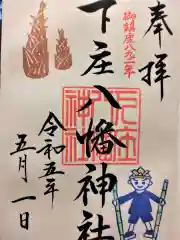 奉拝
御鎮座八九二年
下庄八幡神社
令和五年
五月一日